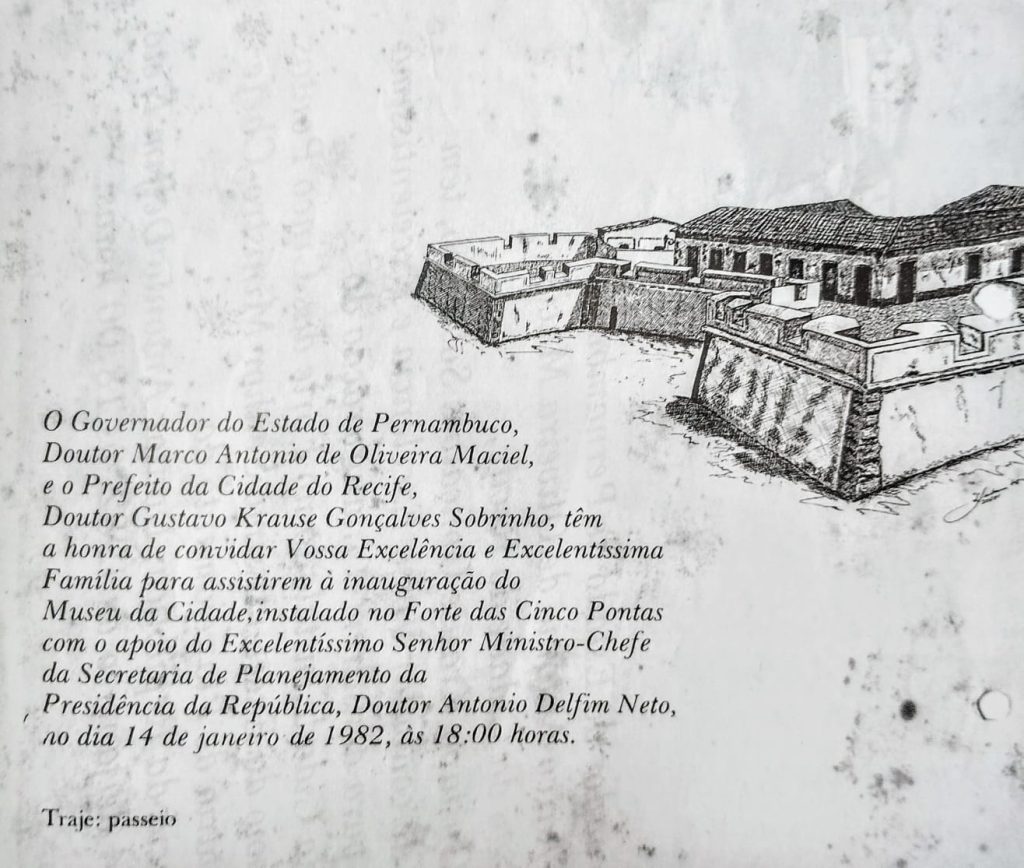 O Governador do Estado de Pernambuco,
Doutor Marco Antonio de Oliveira Maciel,
e o Prefeito da Cidade do Recife,
Doutor Gustavo Krause Gonçalves Sobrinho, têm
a honra de convidar Vossa Excelência e Excelentíssima
Família para assistirem à inauguração do
Museu da Cidade,instalado no Forte das Cinco Pontas
com o apoio do Excelentíssimo Senhor Ministro-Chefe
da Secretaria de Planejamento da
Presidência da República, Doutor Antonio Delfim Neto,
no dia 14 de janeiro de 1982, às 18:00 horas.
Traje: passeio